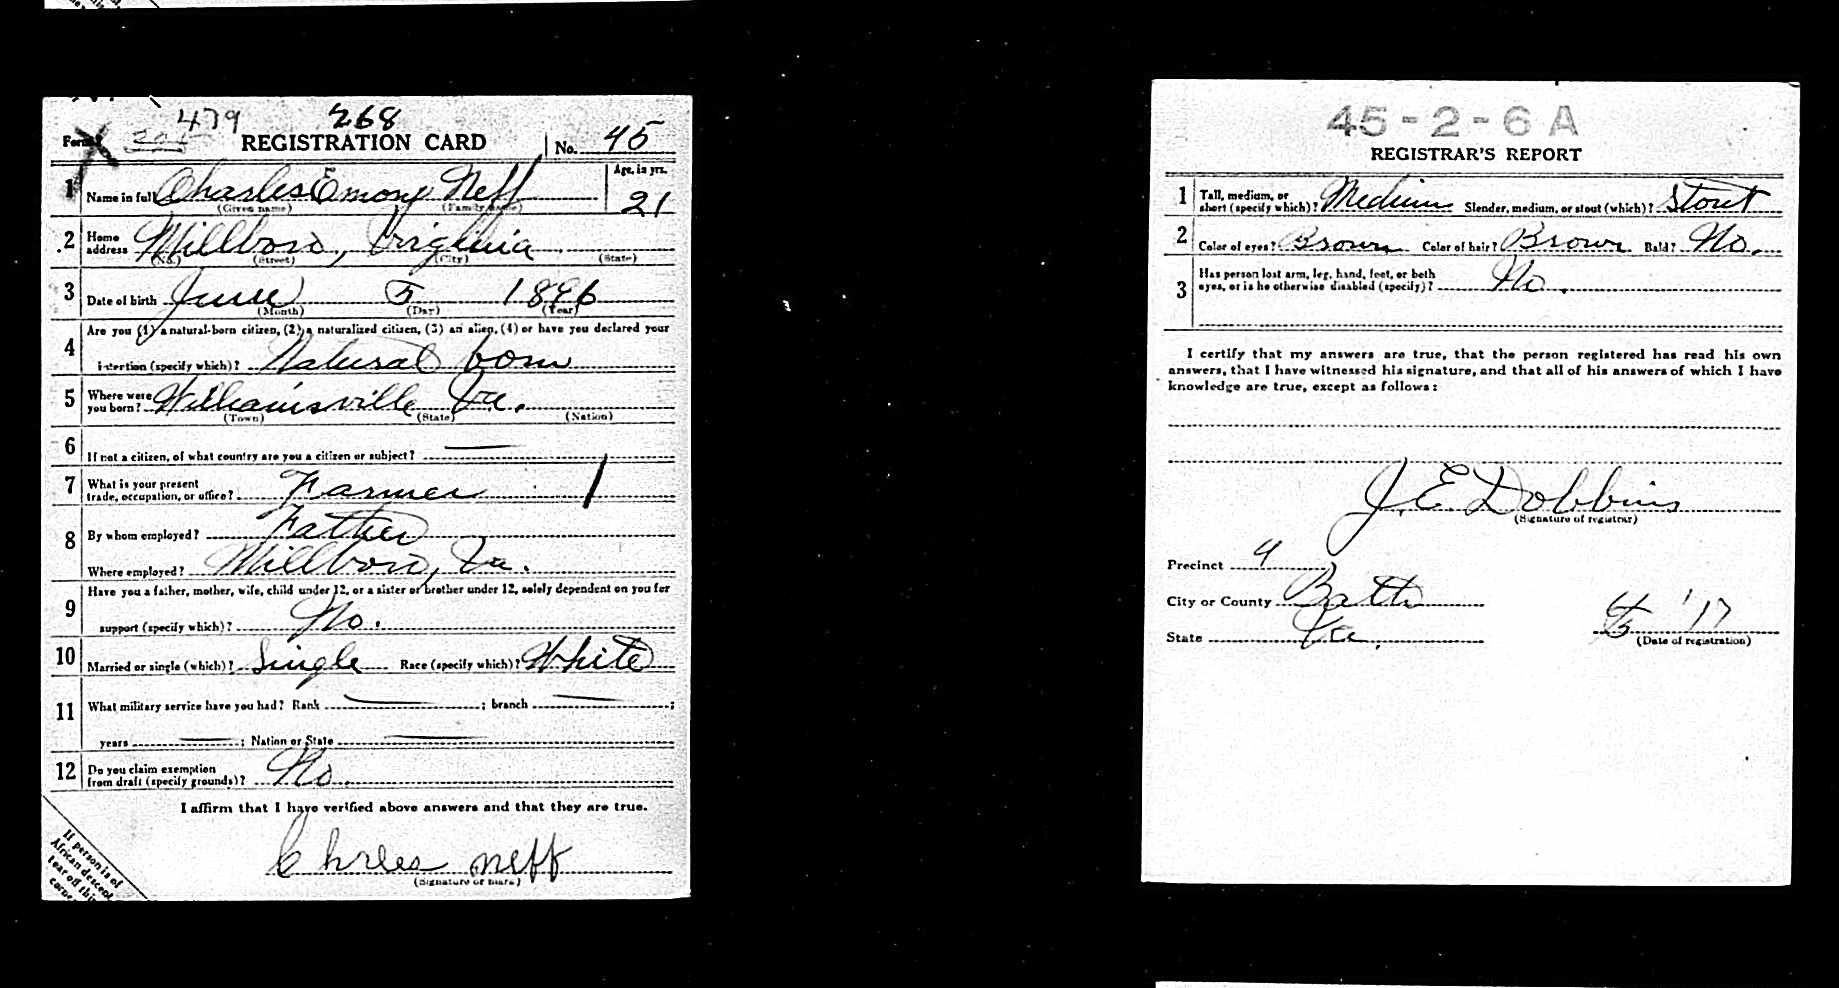 479 268
Form 1 REGISTRATION CARD No. 45
1 Name in full Charles Emory Neff Age, in yrs. 21
(Given name) (Family name)
2 Home address Millboro, Virginia
(No.) (Street) (City) (State)
3 Date of birth June 5 1896
(Month) (Day) (Year)
4 Are you (1) a natural-born citizen, (2) a naturalized citizen, (3) an alien, (4) or have you declared your
intention (specify which)? Natural born
5 Where were you born? Williamsville Va.
(Town) (State) (Nation)
6 If not a citizen, of what country are you a citizen or subject?
7 What is your present trade, occupation, or office? Farmer
8 By whom employed? Father
Where employed? Millboro, Va.
9 Have you a father, mother, wife, child under 12, or a sister or brother under 12, solely dependent on you for
support (specify which)? No.
10 Married or single (which)? Single Race (specify which)? White
11 What military service have you had? Rank ; branch ;
years ; Nation or State
12 Do you claim exemption from draft (specify grounds)? No.
I affirm that I have verified above answers and that they are true.
Chrles Neff
(Signature or mark)
If person is of
African descent,
tear off this
corner
45-2-6 A
REGISTRAR'S REPORT
1 Tall, medium, or short (specify which)? Medium Slender, medium, or stout (which)? Stout
2 Color of eyes? Brown Color of hair? Brown Bald? No.
3 Has person lost arm, leg, hand, foot, or both eyes, or is he otherwise disabled (specify)? No.
I certify that my answers are true, that the person registered has read his own
answers, that I have witnessed his signature, and that all of his answers of which I have
knowledge are true, except as follows:
J. E. Dobbins
(Signature of registrar)
Precinct 4
City or County Bath
State Va.
'17
(Date of registration)